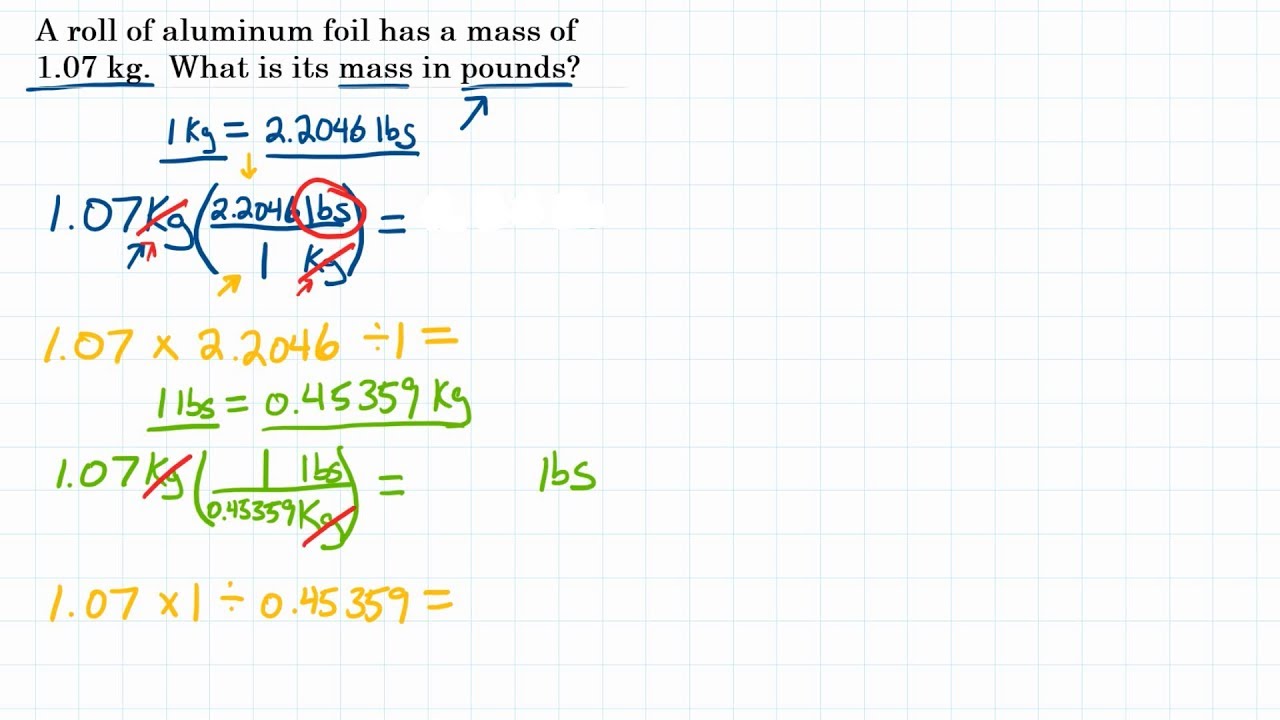 A roll of aluminum foil has a mass of
1.07 kg. What is its mass in pounds?
1 Kg = 2.2046 lbs
1.07 Kg (2.2046 lbs / 1 Kg) =
1.07 x 2.2046 ÷ 1 =
1 lbs = 0.45359 Kg
1.07 Kg (1 lbs / 0.45359 Kg) = lbs
1.07 x 1 ÷ 0.45359 =